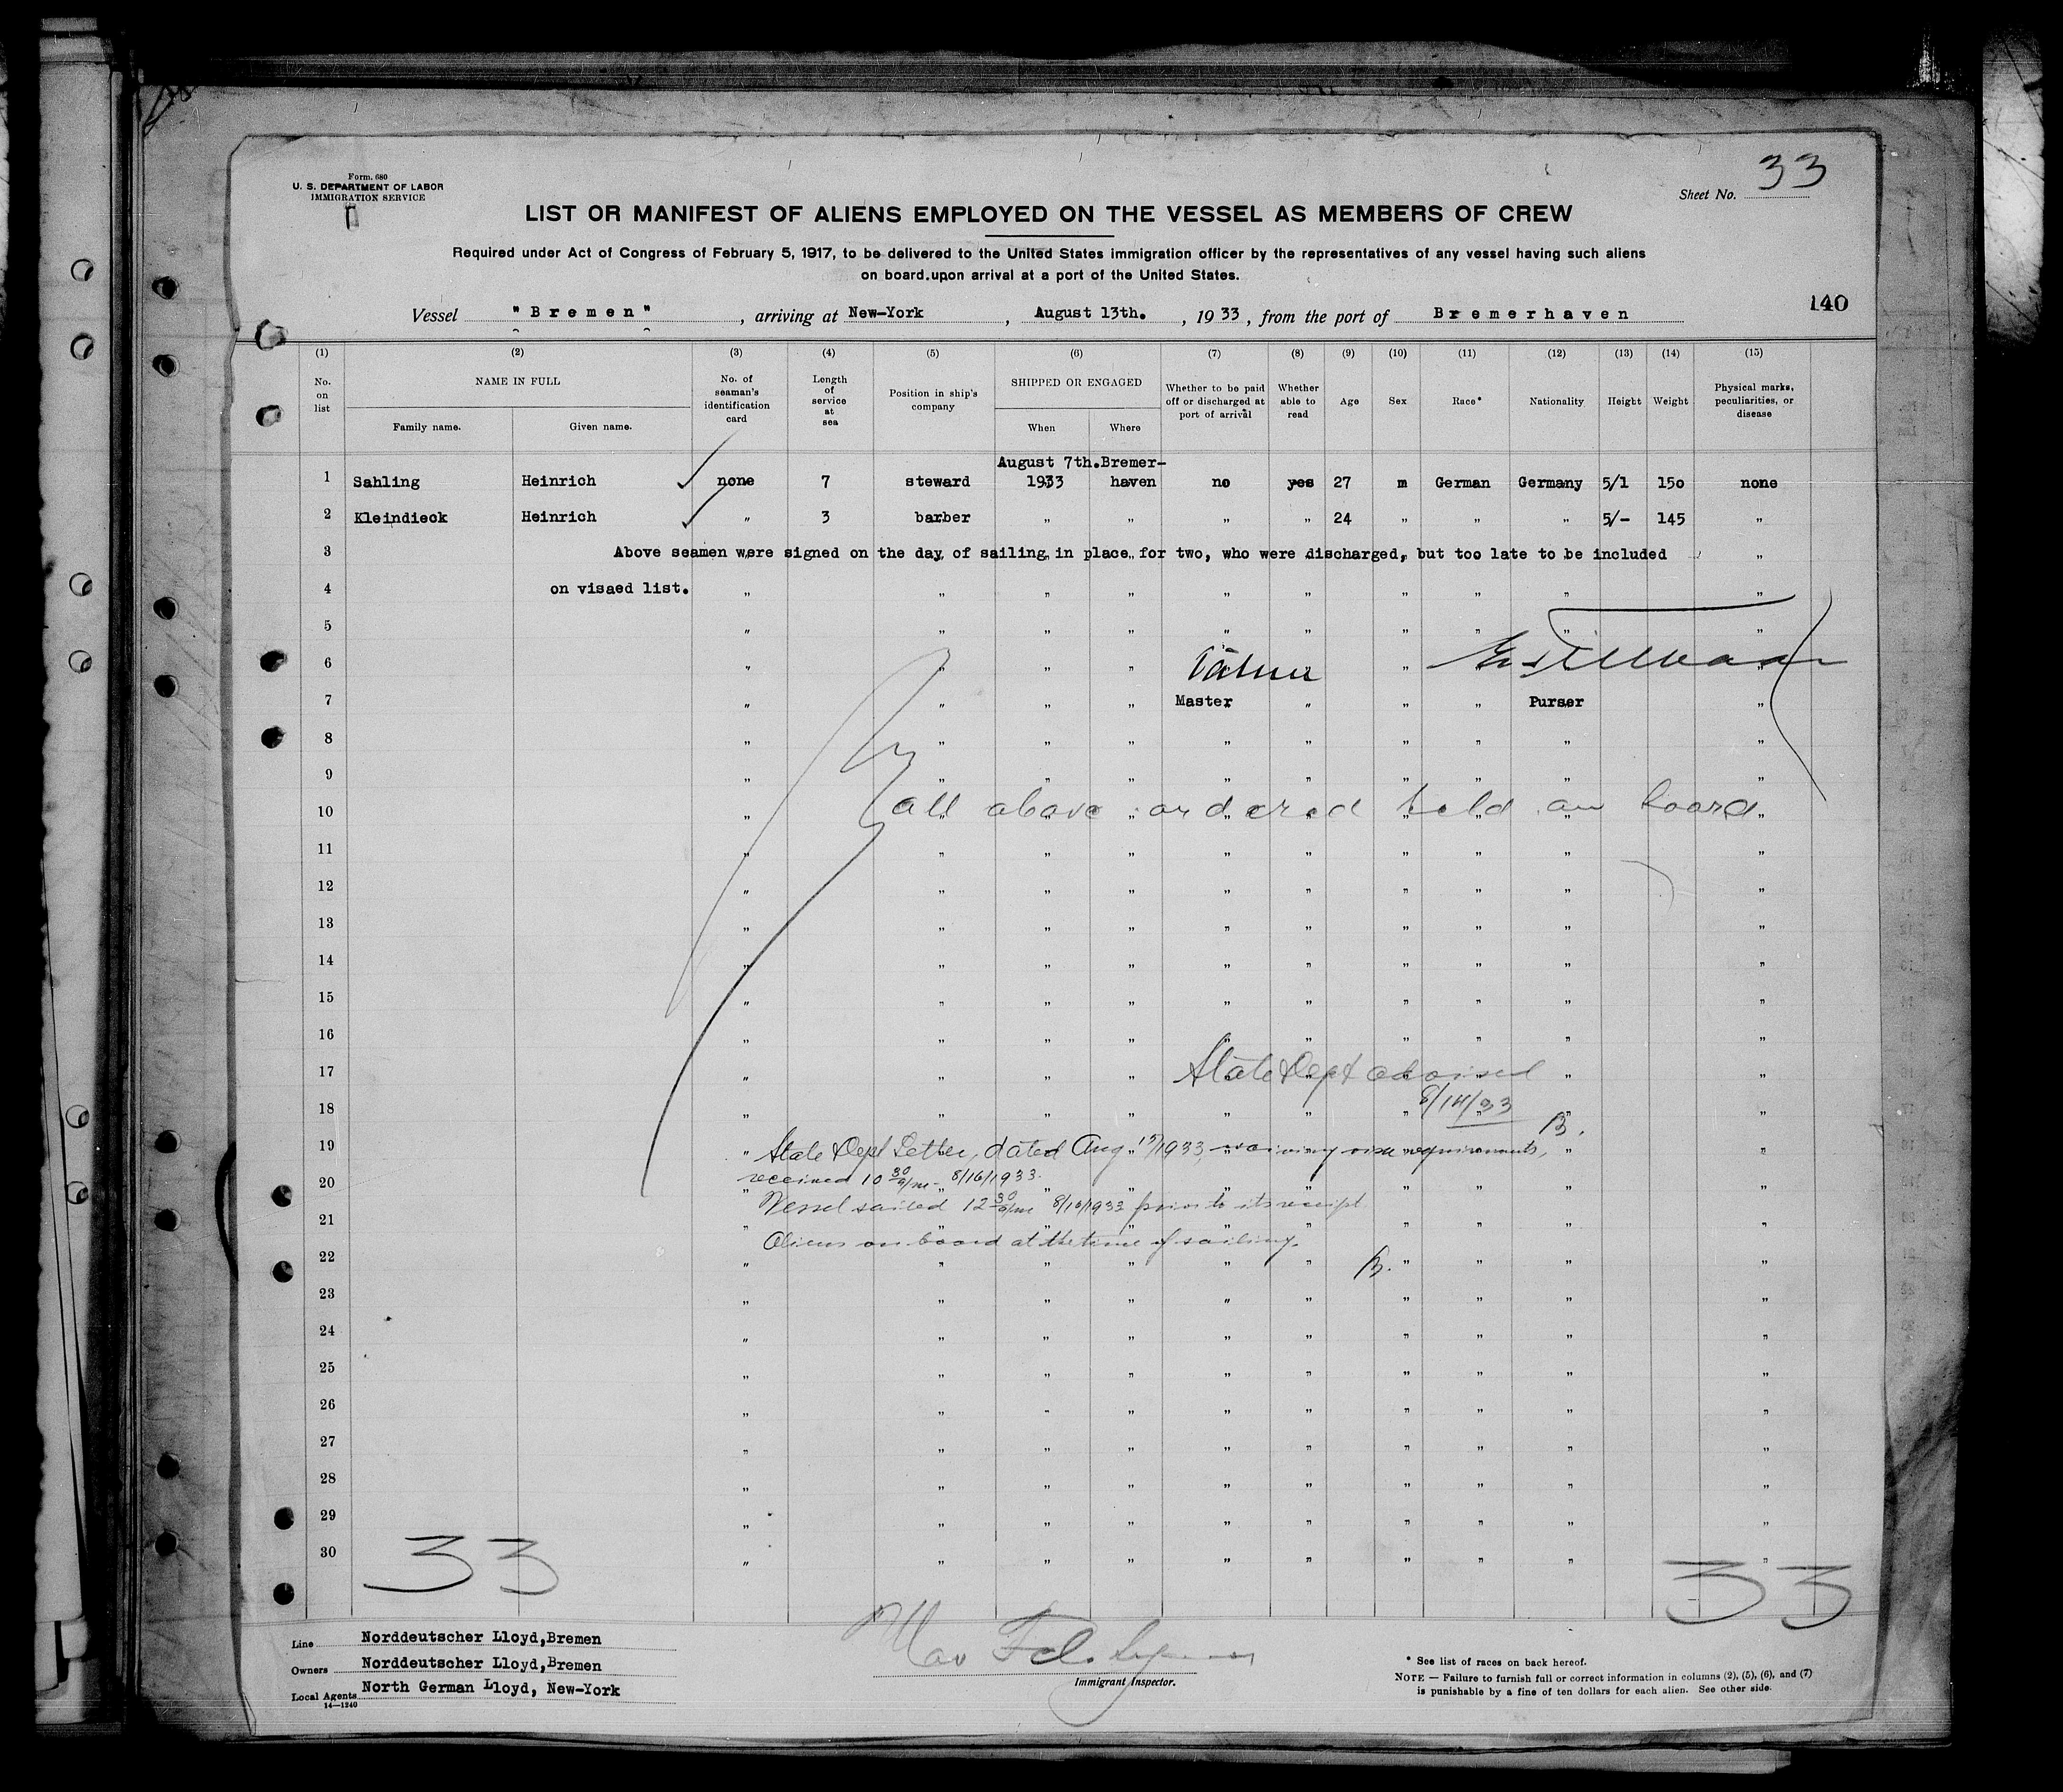 Form. 680
U. S. DEPARTMENT OF LABOR
IMMIGRATION SERVICE
Sheet No. 33
LIST OR MANIFEST OF ALIENS EMPLOYED ON THE VESSEL AS MEMBERS OF CREW
Required under Act of Congress of February 5, 1917, to be delivered to the United States immigration officer by the representatives of any vessel having such aliens
on board upon arrival at a port of the United States.
140
Vessel "Bremen", arriving at New-York, August 13th., 1933, from the port of Bremerhaven
(1) (2) (3) (4) (5) (6) (7) (8) (9) (10) (11) (12) (13) (14) (15)
No. on list NAME IN FULL Family name. Given name. No. of seaman's identification card Length of service at sea Position in ship's company SHIPPED OR ENGAGED When Where Whether to be paid off or discharged at port of arrival Whether able to read Age Sex Race* Nationality Height Weight Physical marks, peculiarities, or disease
August 7th. Bremer-
1 Sahling Heinrich none 7 steward 1933 haven no yes 27 m German Germany 5/1 150 none
2 Kleindieck Heinrich " 3 barber " " " " 24 " " " 5/- 145 "
3 Above seamen were signed on the day of sailing in place for two, who were discharged, but too late to be included "
4 on visaed list. " " " " " " " " " "
5 " " " " " " " " " "
6 " " " " " " "
7 " " " " Master " " " Purser "
8 " " " " " " " " " "
9 " " " " " " " " " "
10 all above ordered held on board
11 " " " " " " " " " "
12 " " " " " " " " " "
13 " " " " " " " " " "
14 " " " " " " " " " "
15 " " " " " " " " " "
16 " " " " " " " " " "
17 " " " " State Dept advised " "
18 " " " " " " " 8/14/33 " "
B.
19 State Dept Letter, dated Aug 15/1933, waiving visa requirements,
20 received 10 30 a/m - 8/16/1933.
21 Vessel sailed 12 30 a/m 8/16/1933 prior to its receipt
22 Aliens on board at the time of sailing.
B.
23 " " " " " " " " " "
24 " " " " " " " " " "
25 " " " " " " " " " "
26 " " " " " " " " " "
27 " " " " " " " " " "
28 " " " " " " " " " "
29 " " " " " " " " " "
30 " " " " " " " " " "
33 33
Line Norddeutscher Lloyd, Bremen
Owners Norddeutscher Lloyd, Bremen
Local Agents North German Lloyd, New-York
14—1240
Immigrant Inspector.
* See list of races on back hereof.
NOTE — Failure to furnish full or correct information in columns (2), (5), (6), and (7)
is punishable by a fine of ten dollars for each alien. See other side.